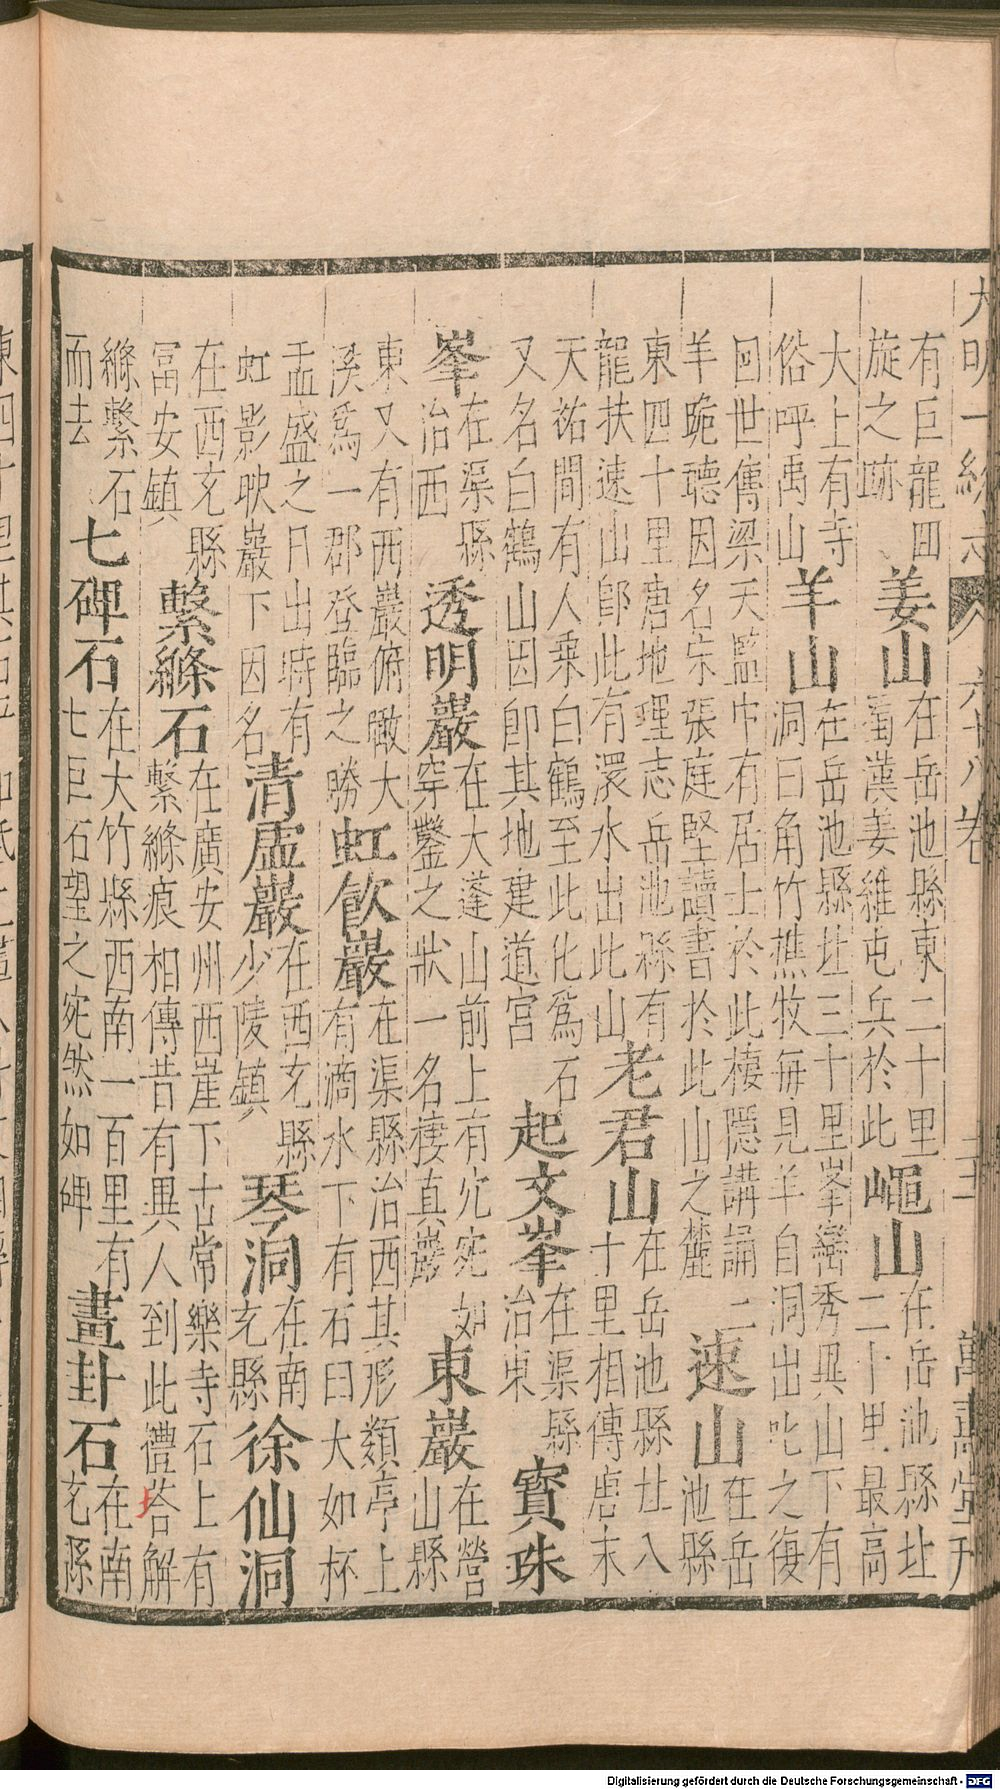 大明一統志 六十八卷 萬壽堂刊
有巨龍回
旋之跡
姜山
在岳池縣東二十里
蜀漢姜維屯兵於此
蠅山
在岳池縣北
二十里最高
大上有寺
俗呼禹山
羊山
在岳池縣北三十里峯巒秀異山下有
洞曰角竹樵牧每見羊自洞出叱之復
回世傳梁天監中有居士於此棲隱講誦二
羊跪聽因名宋張庭堅讀書於此山之麓
速山
在岳
池縣
東四十里唐地理志岳池縣有
龍扶速山卽此有澴水出此山
老君山
在岳池縣北八
十里相傳唐末
天祐間有人乘白鶴至此化爲石
又名白鶴山因卽其地建道宮
起文峯
在渠縣
治東
寳珠
峯
在渠縣
治西
透明巖
在大蓬山前上有穴宛如
穿鑿之狀一名棲真巖
東巖
在營
山縣
東又有西巖俯瞰大
溪爲一郡登臨之勝
虹飲巖
在渠縣治西其形類亭上
有滴水下有石曰大如杯
盂盛之日出時有
虹影映巖下因名
清虛巖
在西充縣
少陵鎮
琴洞
在南
充縣
徐仙洞
在西充縣
冨安鎮
繫絛石
在廣安州西崖下古常樂寺石上有
繫絛痕相傳昔有異人到此禮荅解
絛繫石
而去
七碑石
在大竹縣西南一百里有
七巨石望之宛然如碑
畫卦石
在南
充縣
Digitalisierung gefördert durch die Deutsche Forschungsgemeinschaft - DFG